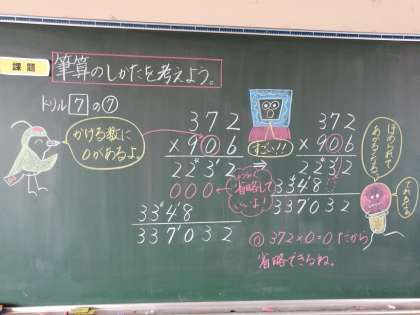 課題
筆算のしかたを考えよう。
ドリル7の⑦
かける数に
0があるよ。
372
×906
2232
000
3348
337032
省略して
いいよ!
すごい!!
372
×906
2232
3348
337032
◎ 372×0=0だから
省略できるね。